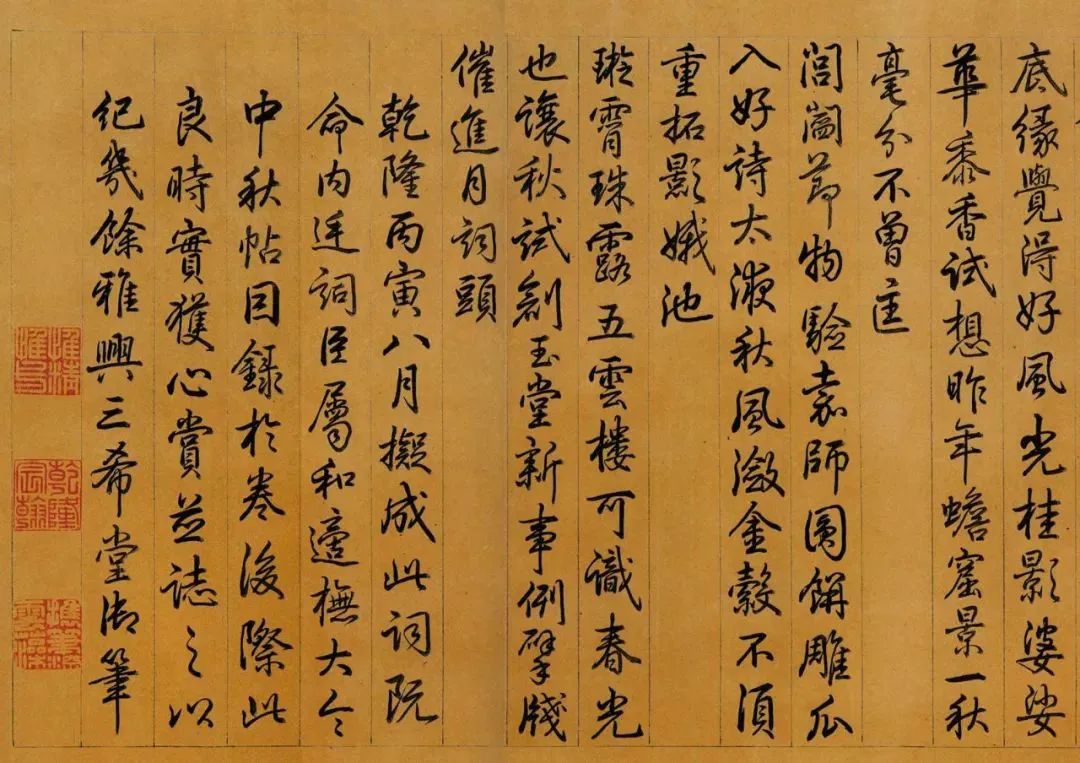 底緣覺得好風光桂影婆娑
華黍香試想昨年蟾窟景一秋
毫分不曾匡
閶闔節物驗嘉師圓餅雕瓜
入好詩太液秋風瀲金縠不須
重拓影娥池
璇霄珠露五雲樓可識春光
也讓秋試創玉堂新事例擘牋
催進月詞頭
乾隆丙寅八月擬成此詞既
命內廷詞臣屬和遂橅大令
中秋帖因錄於卷後際此
良時實獲心賞並誌之以
紀幾餘雅興三希堂御筆
乾隆
宸翰